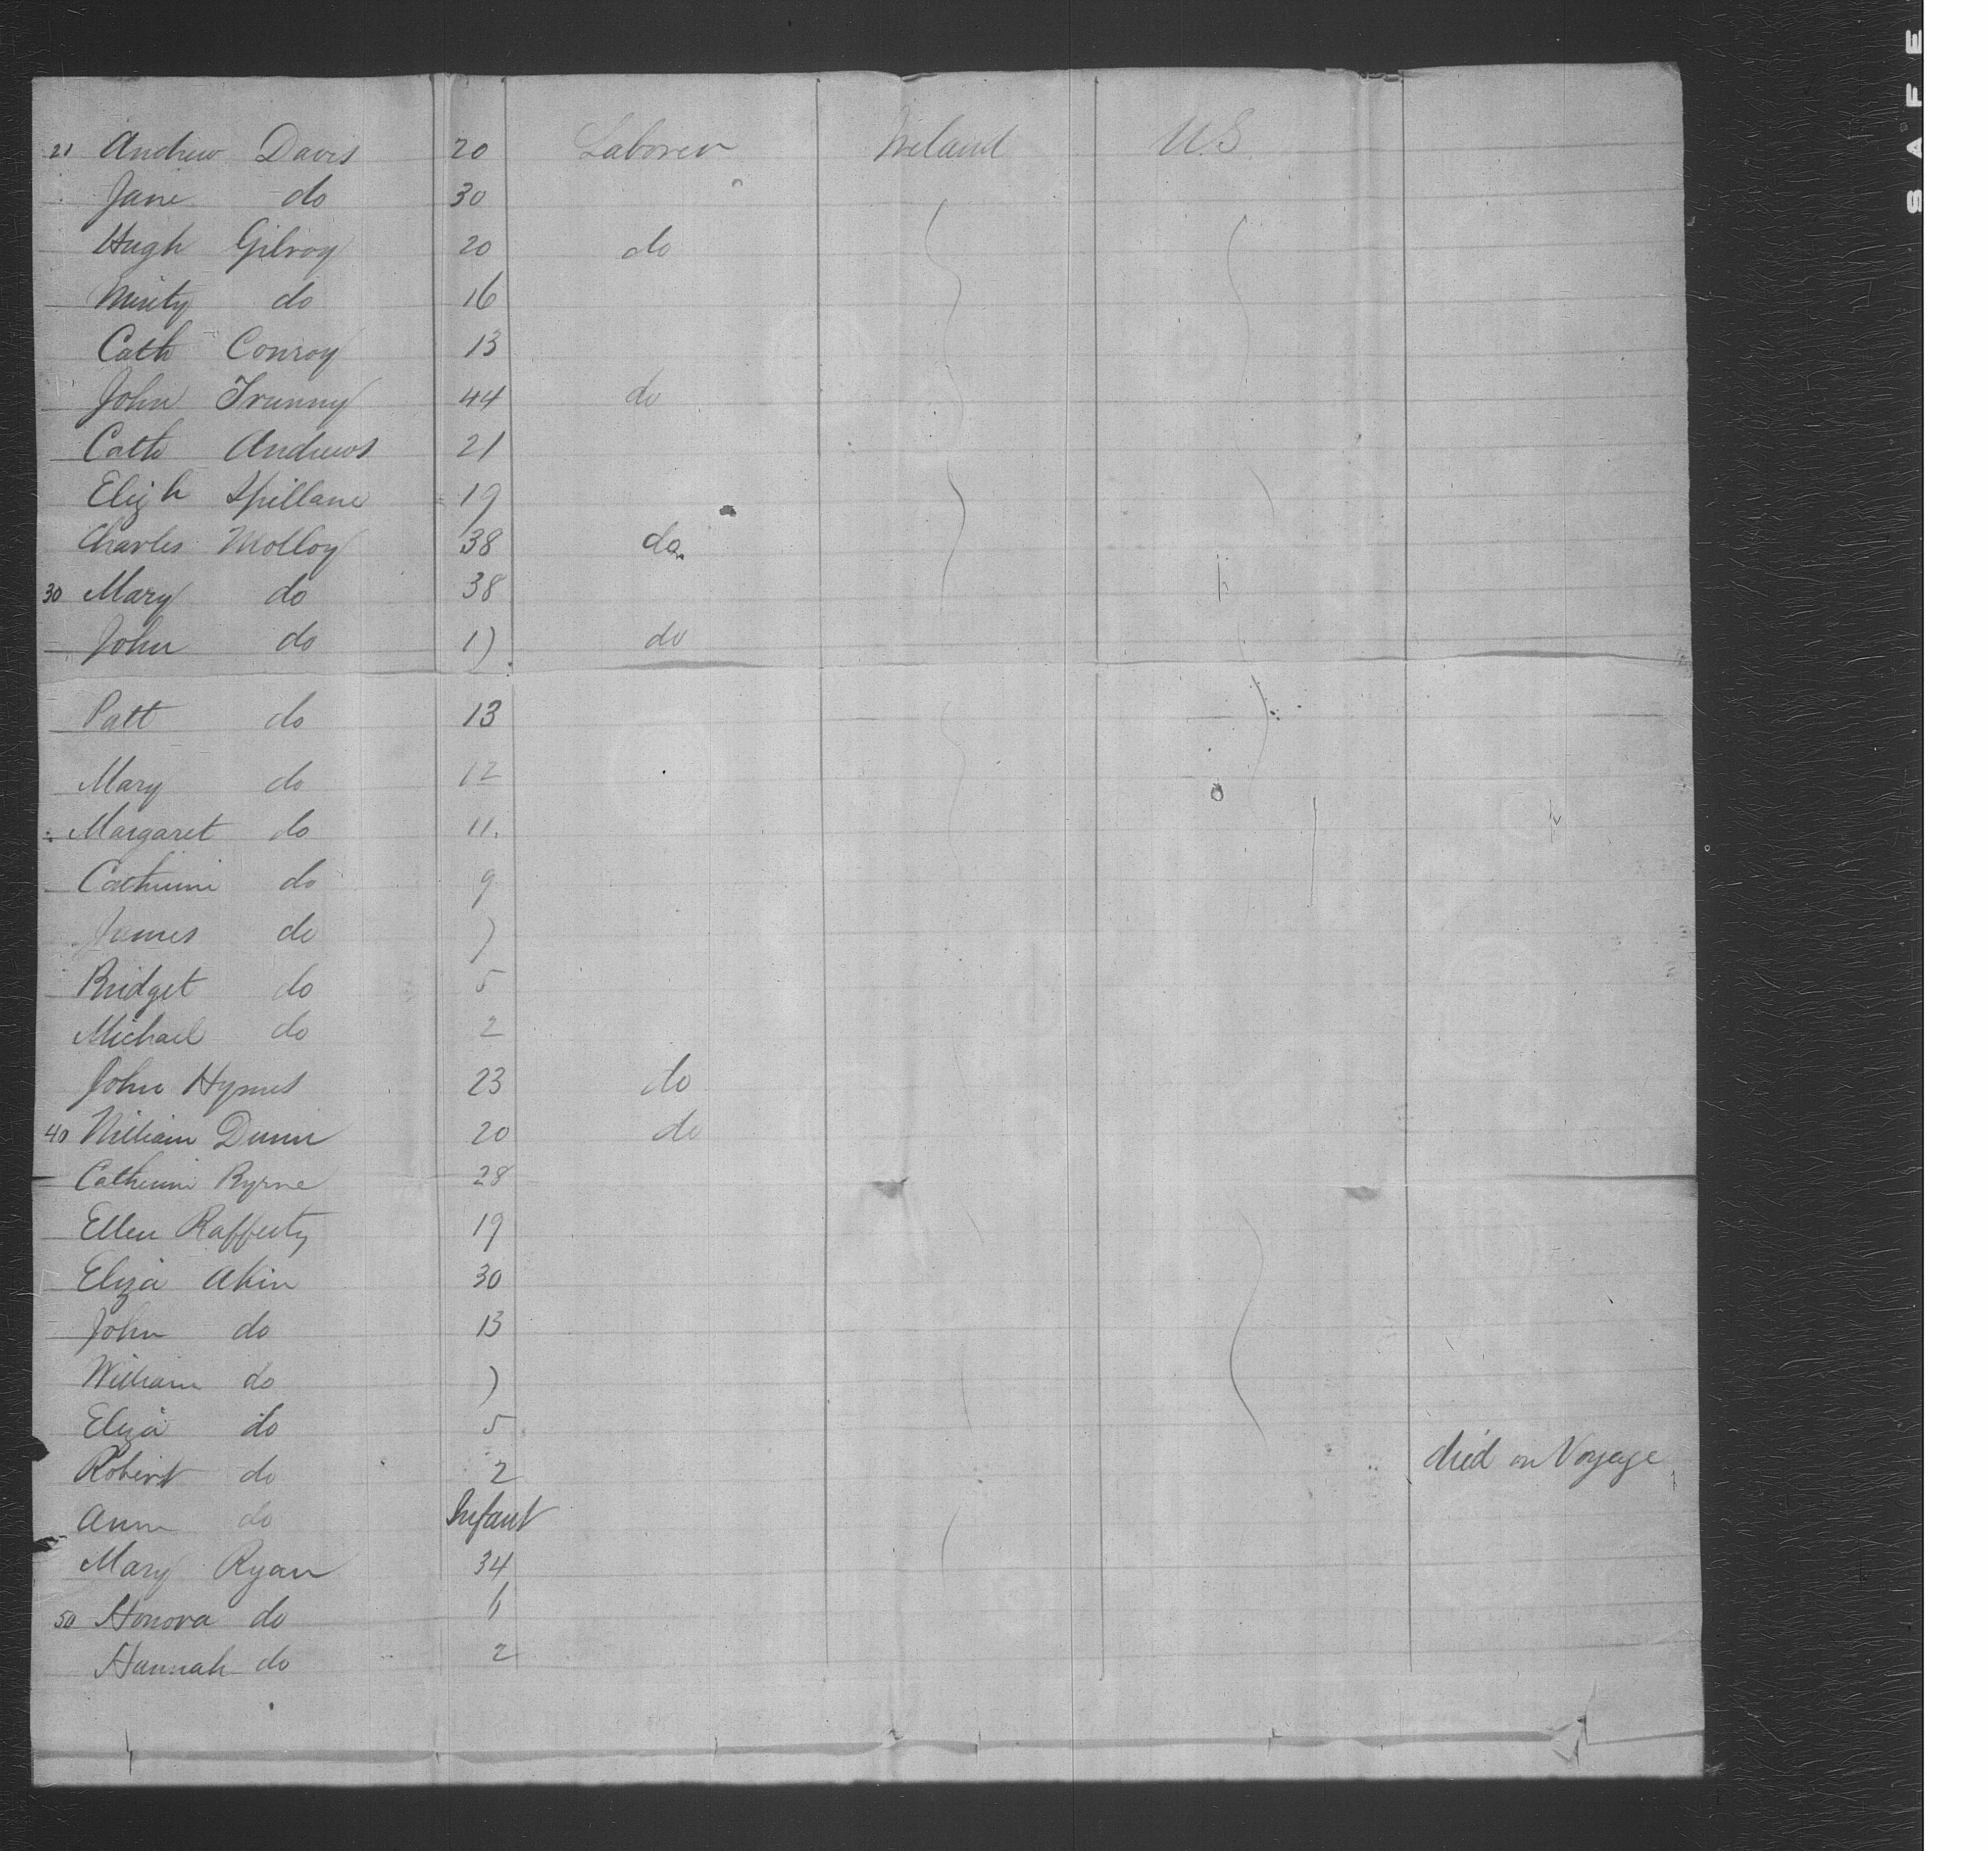 21 Andrew Davis 20 Laborer Ireland U.S.
Jane do 30
Hugh Gilroy 20 do
Minty do 16
Cath Conroy 13
John Trunny 44 do
Cath Andrews 21
Elizh Spillane 19
Charles Molloy 38 do
30 Mary do 38
John do 17 do
Patt do 13
Mary do 12
Margaret do 11.
Catherine do 9
James do 7
Bridget do 5
Michael do 2
John Hymes 23 do
40 William Dunn 20 do
Catherine Byrne 28
Ellen Rafferty 19
Eliza Akin 30
John do 13
William do 7
Eliza do 5
Robert do 2 died on Voyage
Ann do Infant
Mary Ryan 34
50 Honora do 6
Hannah do 2
SAFE